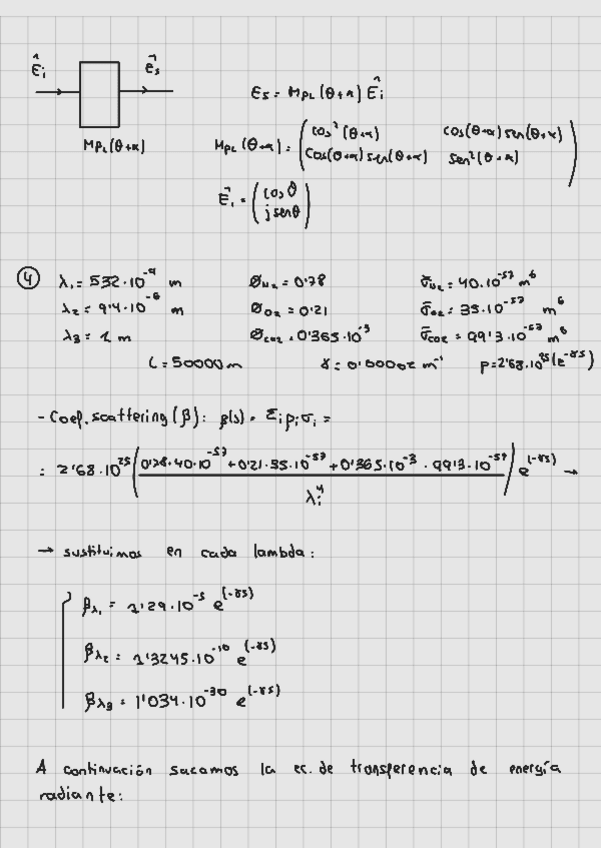 Êi E⃗s
MPL(θ+α)
Es = MPL(θ+α) Êi
MPL(θ+α) = ( cos²(θ+α) cos(θ+α) sen(θ+α)
cos(θ+α) sen(θ+α) sen²(θ+α) )
E⃗i = ( cos θ
j senθ )
④ λ1 = 532·10⁻⁹ m ØN2 = 0'78 σ̄N2 = 40·10⁻⁵⁷ m⁶
λ2 = 9'4·10⁻⁶ m ØO2 = 0'21 σ̄O2 = 35·10⁻⁵⁷ m⁶
λ3 = 1 m ØCO2 = 0'365·10⁻³ σ̄CO2 = 99'3·10⁻⁵⁷ m⁶
L = 50000 m γ = 0'00002 m⁻¹ p = 2'68·10²⁵(e^-γs)
- Coef. scattering (β): β(s) = Σi pi σi =
= 2'68·10²⁵ ( 0'78·40·10⁻⁵⁷ + 0'21·35·10⁻⁵⁷ + 0'365·10⁻³ · 99'3·10⁻⁵⁷ / λi⁴ ) e^(-γs) →
→ sustituimos en cada lambda:
βλ1 = 1'29·10⁻⁵ e^(-γs)
βλ2 = 1'3245·10⁻¹⁰ e^(-γs)
βλ3 = 1'034·10⁻³⁰ e^(-γs)
A continuación sacamos la ec. de transferencia de energía
radiante: